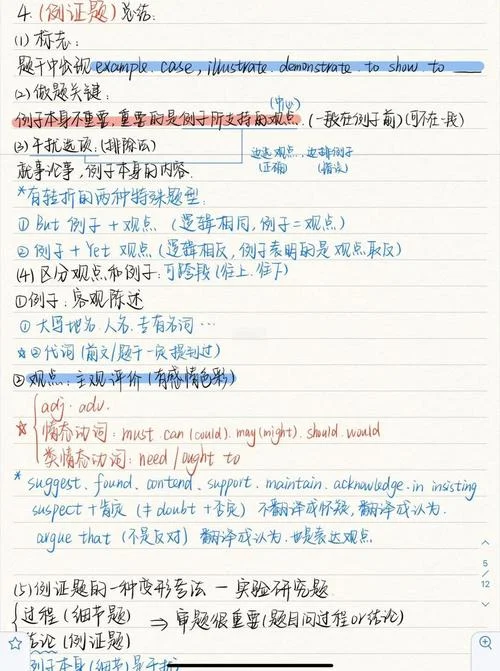 4.(例证题)总结:
(1)标志:
题干中出现 example. case, illustrate. demonstrate. to show to
(2)做题关键: (中心)
例子本身不重要,重要的是例子所支持的观点.(一般在例子前)(可不在一段)
(3)干扰选项:(排除法) 边选观点,边排例子
就事论事,例子本身的内容. (正确) (错误)
*有转折的两种特殊题型:
① But 例子 + 观点 (逻辑相同,例子=观点)
② 例子 + Yet 观点 (逻辑相反,例子表明的是观点取反)
(4)区分观点和例子:可跨段(往上.往下)
①例子:客观陈述
①大写地名.人名.专有名词…
☆②代词(前文/题干一定提到过)
②观点:主观评价(有感情色彩)
adj. adv.
☆ 情态动词: must. can (could). may(might). should. would
类情态动词: need / ought to
* suggest. found. contend. support. maintain. acknowledge. in insisting
suspect + 肯定 (≠ doubt + 否定) 不翻译成怀疑,翻译成认为.
argue that (不是反对) 翻译成认为.也是表达观点.
5
12
(5)例证题的一种变形考法 — 实验研究题
过程(细节题) ⇒ 审题很重要(题目问过程or结论)
结论(例证题)
例子本身(细节)是干扰